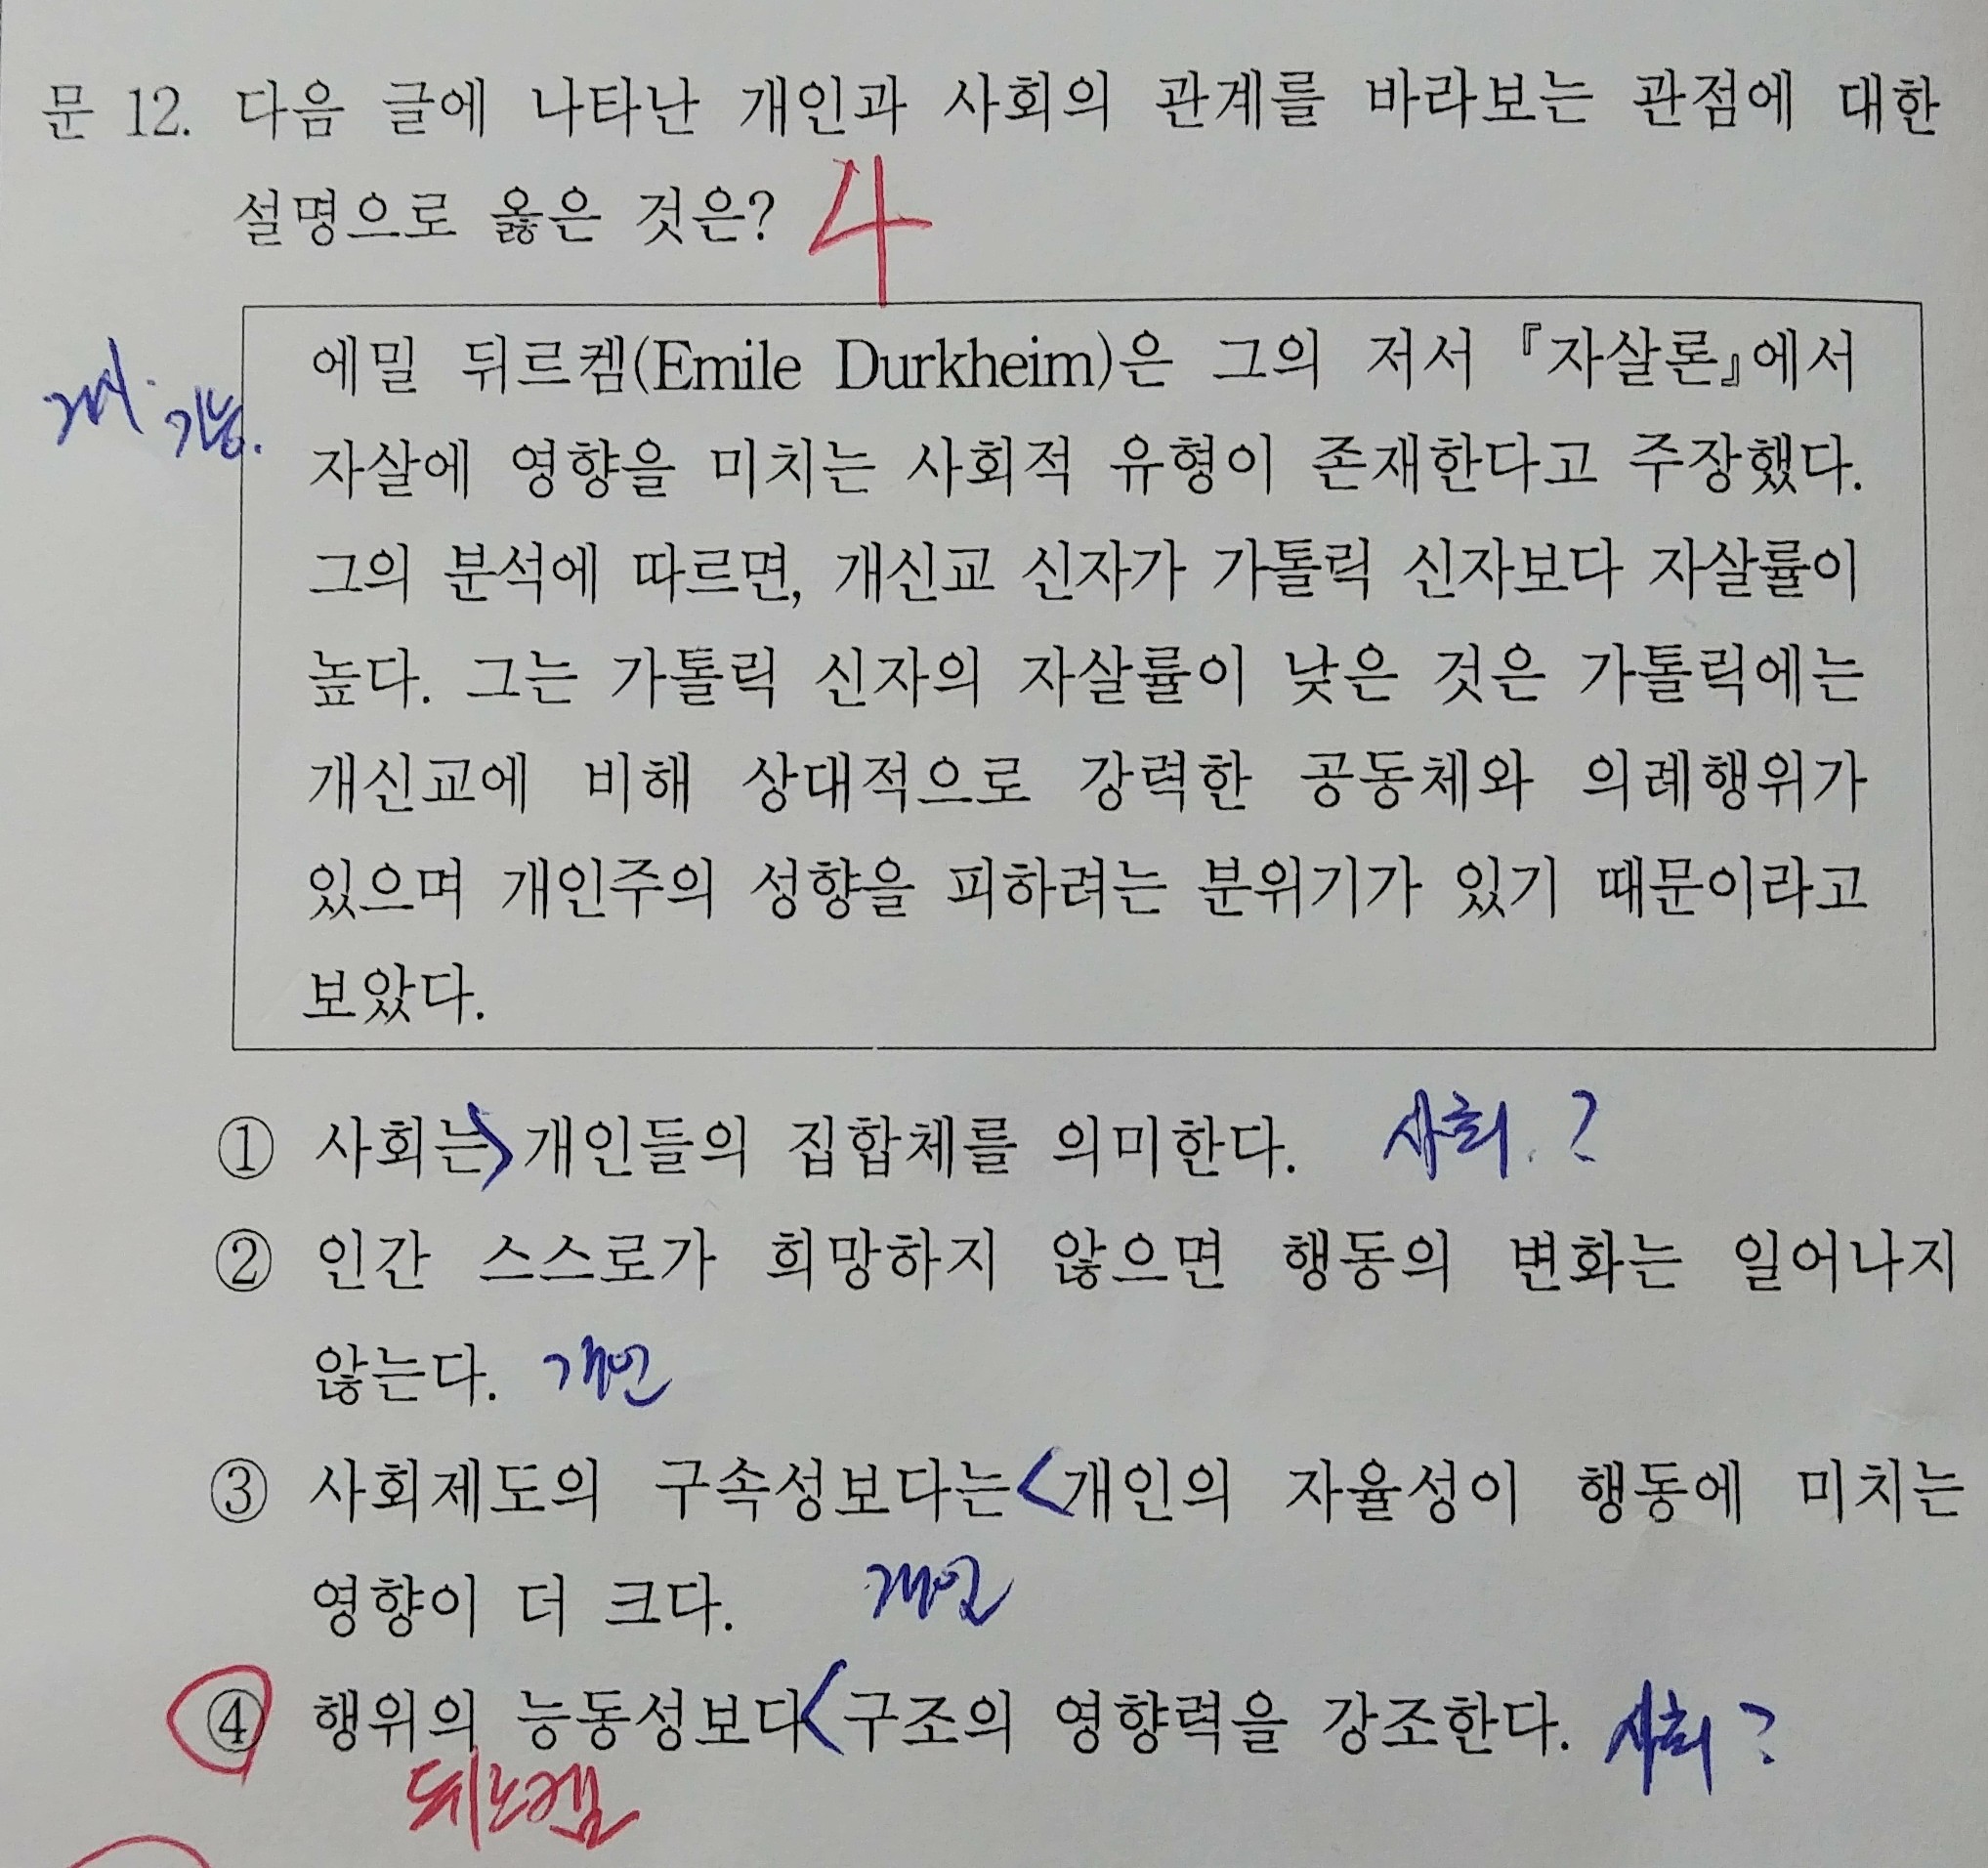 문 12. 다음 글에 나타난 개인과 사회의 관계를 바라보는 관점에 대한
설명으로 옳은 것은? 4
에밀 뒤르켐(Emile Durkheim)은 그의 저서 『자살론』에서
자살에 영향을 미치는 사회적 유형이 존재한다고 주장했다.
기능.
그의 분석에 따르면, 개신교 신자가 가톨릭 신자보다 자살률이
높다. 그는 가톨릭 신자의 자살률이 낮은 것은 가톨릭에는
개신교에 비해 상대적으로 강력한 공동체와 의례행위가
있으며 개인주의 성향을 피하려는 분위기가 있기 때문이라고
보았다.
① 사회는 > 개인들의 집합체를 의미한다. 사회. ?
② 인간 스스로가 희망하지 않으면 행동의 변화는 일어나지
않는다. 개인
③ 사회제도의 구속성보다는 < 개인의 자율성이 행동에 미치는
영향이 더 크다. 개인
④ 행위의 능동성보다 < 구조의 영향력을 강조한다. 사회 ?
뒤르켐